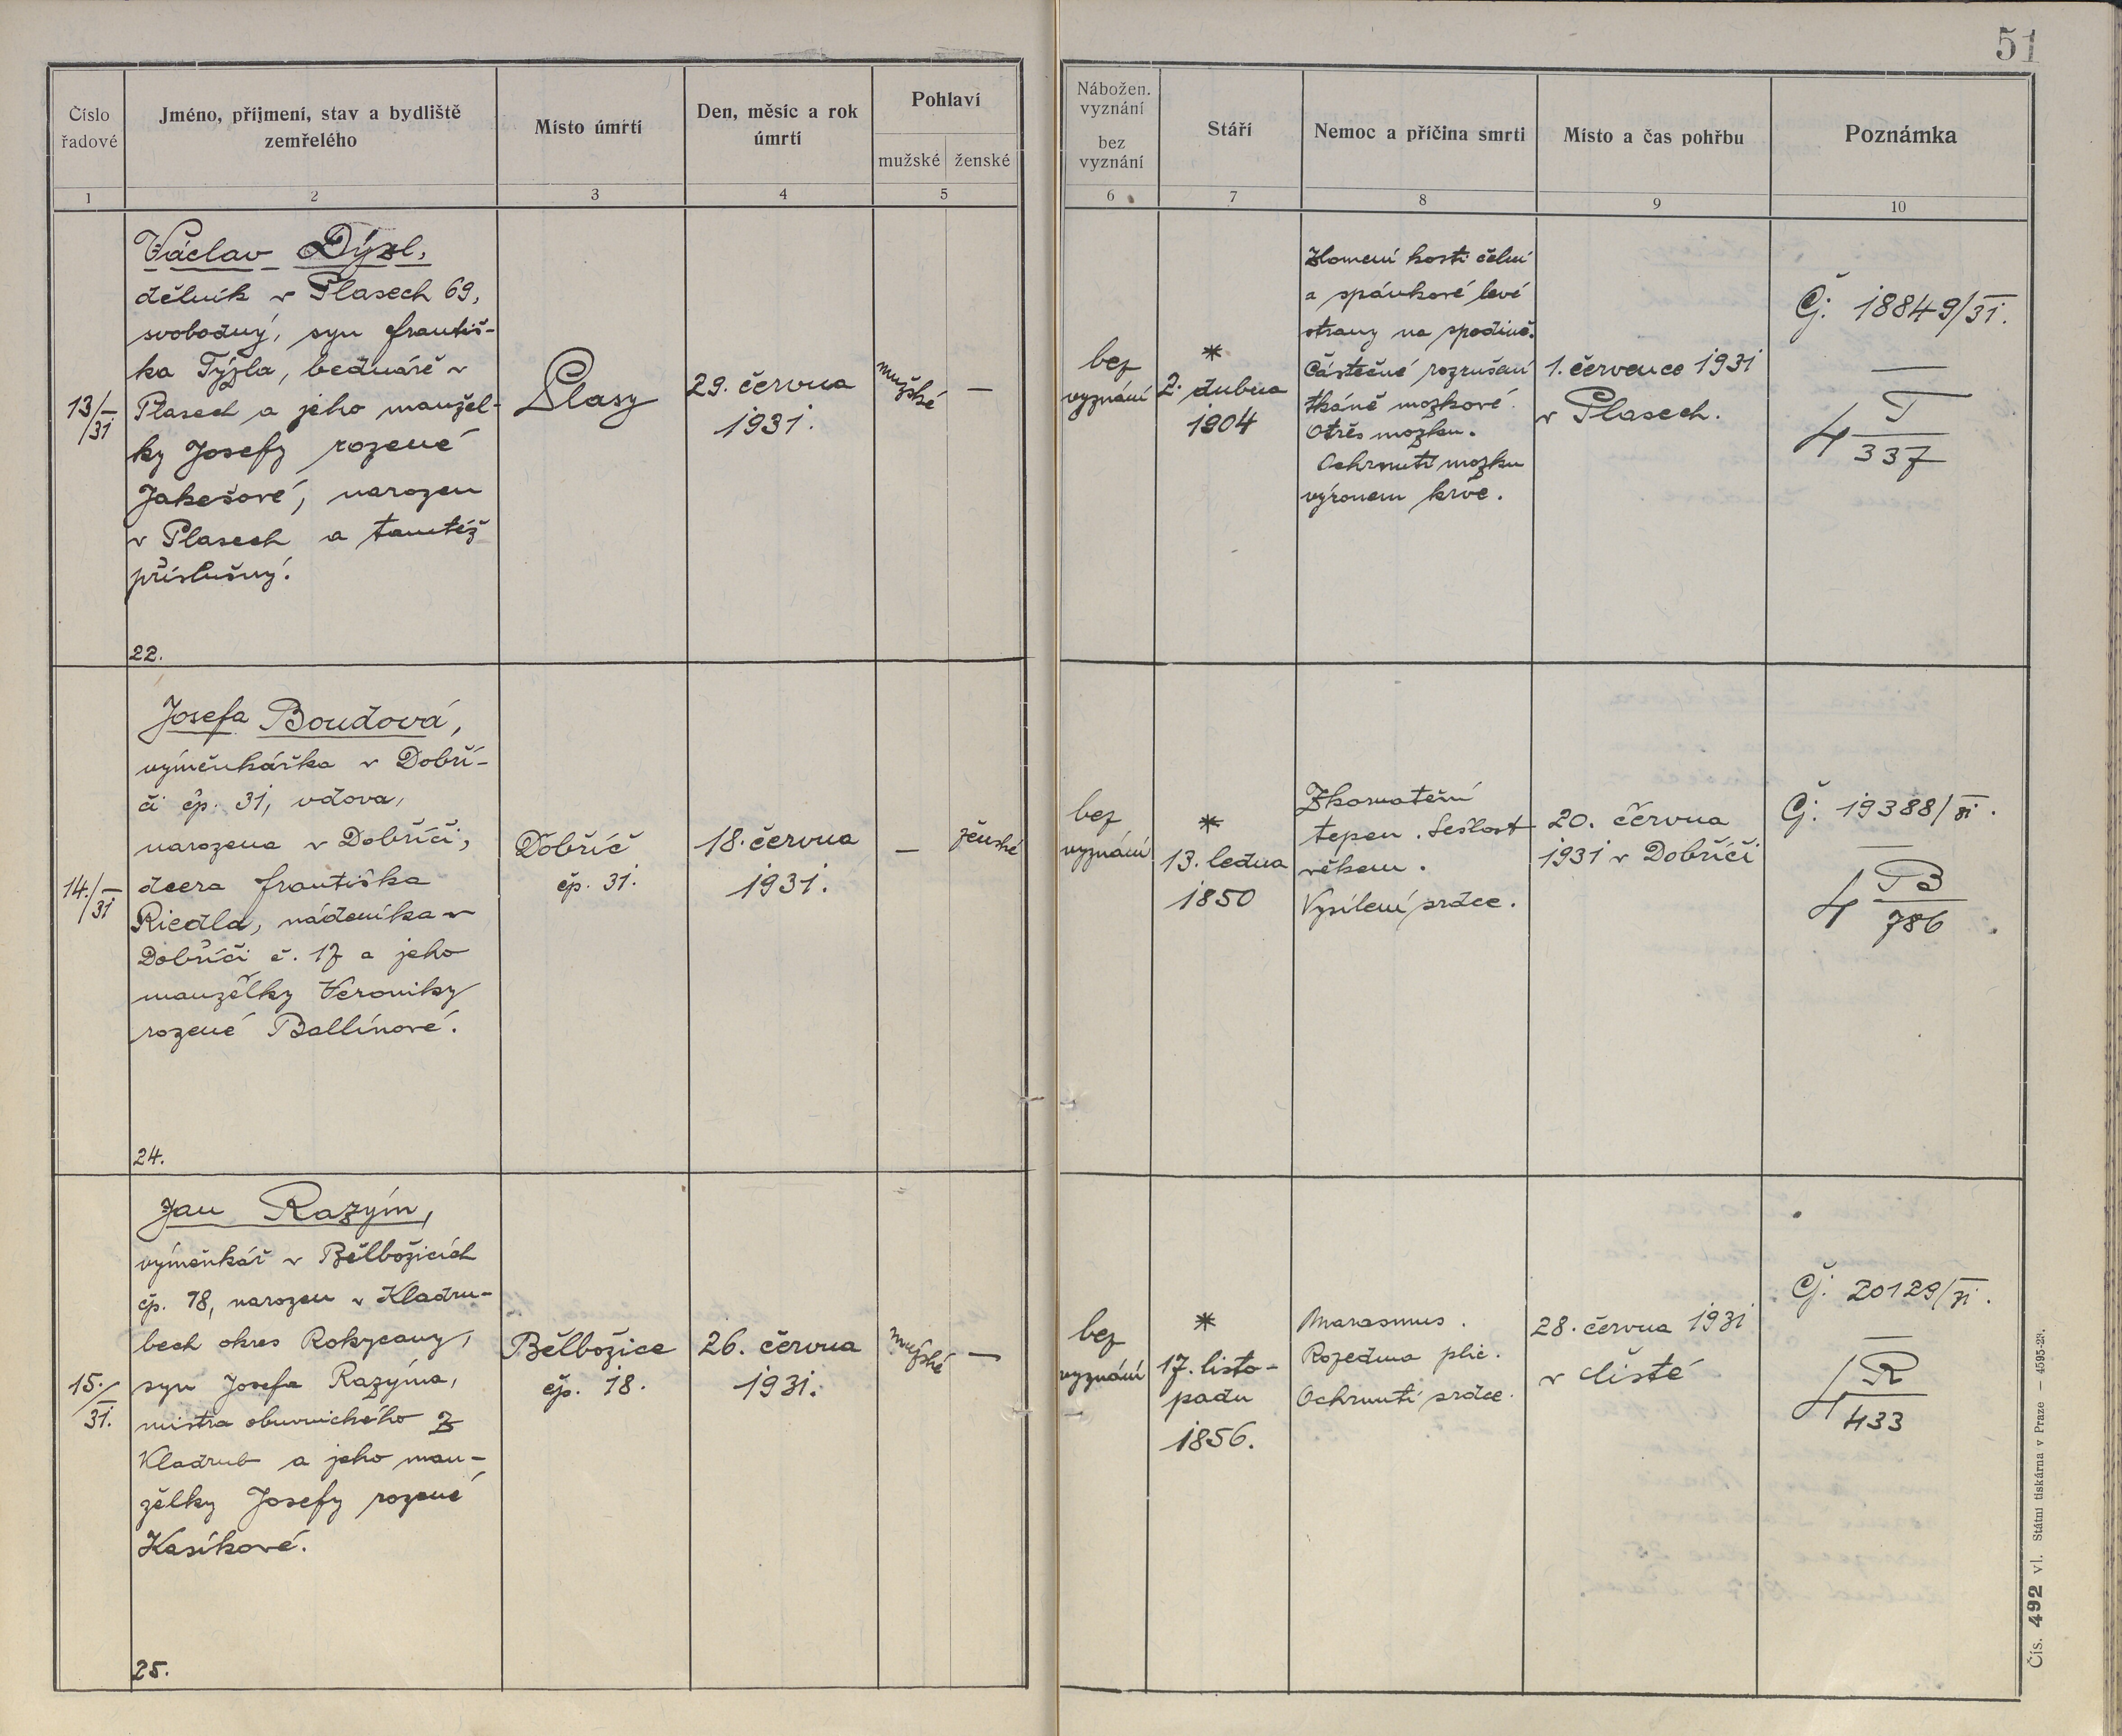 51
Číslo
řadové
Jméno, příjmení, stav a bydliště
zemřelého
Místo úmrtí
Den, měsíc a rok
úmrtí
Pohlaví
mužské
ženské
Nábožen.
vyznání
bez
vyznání
Stáří
Nemoc a příčina smrti
Místo a čas pohřbu
Poznámka
1
2
3
4
5
6
7
8
9
10
13/31
Václav Dýzl,
dělník v Plasech 69,
svobodný, syn Františ-
ka Týzla, bednáře v
Plasech a jeho manžel-
ky Josefy rozené
Jakešové, narozen
v Plasech a tamtéž
příslušný.
22.
Plasy
29. června
1931.
mužské
—
bez
vyznání
*
2. dubna
1904
Zlomení kosti čelní
a spánkové levé
strany na spodině.
Částečné rozrušení
tkáně mozkové.
Otřes mozku.
Ochrnutí mozku
výronem krve.
1. července 1931
v Plasech.
Čj. 18849/31.
—
4 T
337
14./31
Josefa Boudová,
výměnkářka v Dobří-
či čp. 31, vdova,
narozena v Dobříči,
dcera Františka
Riedla, nádeníka v
Dobříči č. 17 a jeho
manželky Veroniky
rozené Ballínové.
24.
Dobříč
čp. 31.
18. června
1931.
—
ženské
bez
vyznání
*
13. ledna
1850
Zkornatění
tepen. Sešlost
věkem.
Vysílení srdce.
20. června
1931 v Dobříči
Čj. 19388/31.
—
4 B
786
15./31.
Jan Razým,
výměnkář v Bělbožicích
čp. 18, narozen v Kladru-
bech okres Rokycany,
syn Josefa Razýma,
mistra obuvnického z
Kladrub a jeho man-
želky Josefy rozené
Kasíkové.
25.
Bělbožice
čp. 18.
26. června
1931.
mužské
—
bez
vyznání
*
17. listo-
padu
1856.
Marasmus.
Rozedma plic.
Ochrnutí srdce.
28. června 1931
v Čisté
Čj. 20129/31.
—
4 R
433
Čís. 492 vl. Státní tiskárna v Praze — 4595-23.